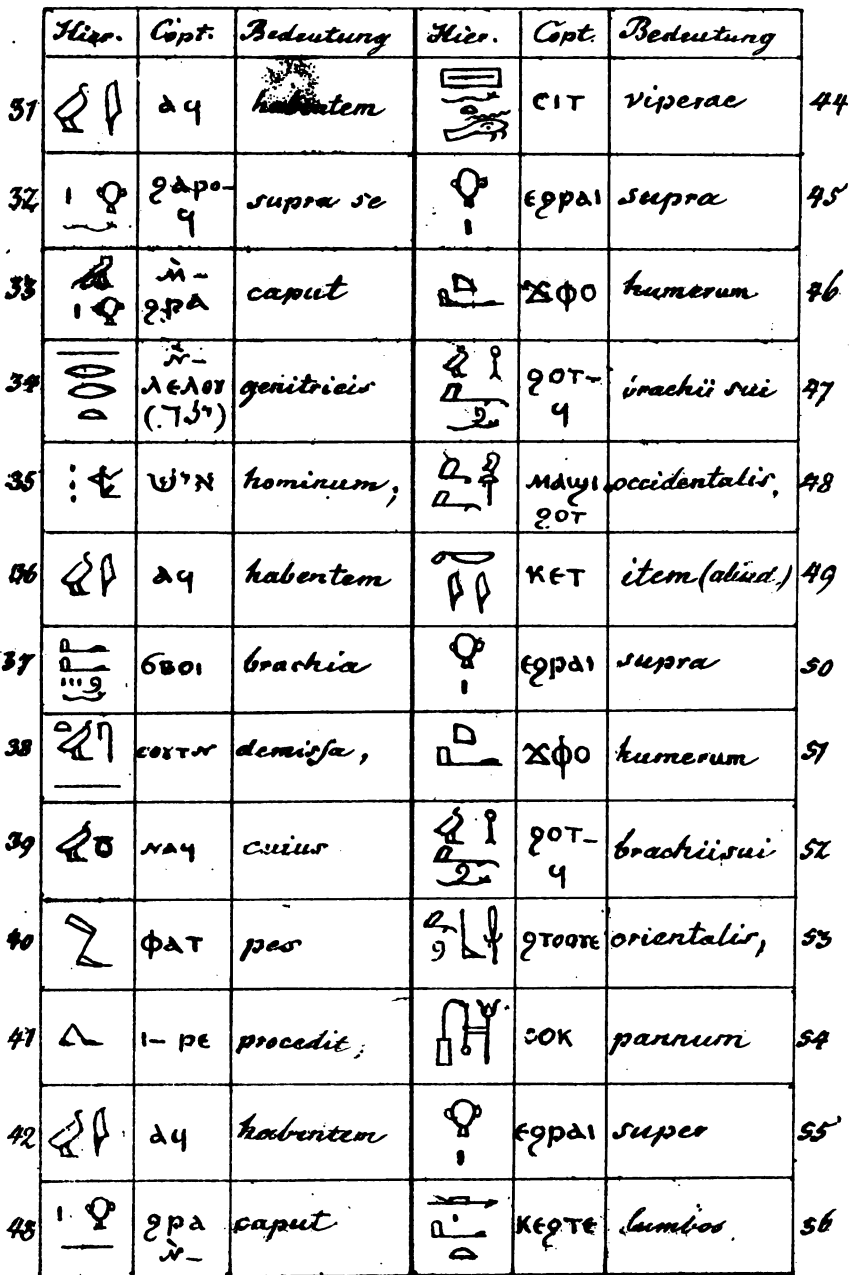 Hier. Copt. Bedeutung Hier. Copt. Bedeutung
31 ⲁϥ habentem ⲥⲓⲧ viperae 44
32 ϩⲁⲣⲟ- supra se ⲉϩⲣⲁⲓ supra 45
ϥ
33 ⲙ̀- caput ϫⲫⲟ humerum 46
ϩⲣⲁ
34 ⲛ̀- genitricis ϩⲟⲧ- brachii sui 47
ⲗⲉⲗⲟⲩ ϥ
35 איש hominum; ⲙⲁϣⲓ occidentalis, 48
ϩⲟⲧ
36 ⲁϥ habentem ⲕⲉⲧ item (aliud.) 49
37 ϭⲃⲟⲓ brachia ⲉϩⲣⲁⲓ supra 50
38 ⲥⲟⲩⲧⲛ demissa, ϫⲫⲟ humerum 51
39 ⲛⲁϥ cuius ϩⲟⲧ- brachii sui 52
ϥ
40 ⲫⲁⲧ pes ϩⲧⲟⲟⲩⲉ orientalis, 53
41 ⲓ- ⲣⲉ procedit; ⲥⲟⲕ pannum 54
42 ⲁϥ habentem ⲉϩⲣⲁⲓ super 55
43 ϩⲣⲁ caput ⲕⲉϩⲧⲉ lumbos 56
ⲛ̀-